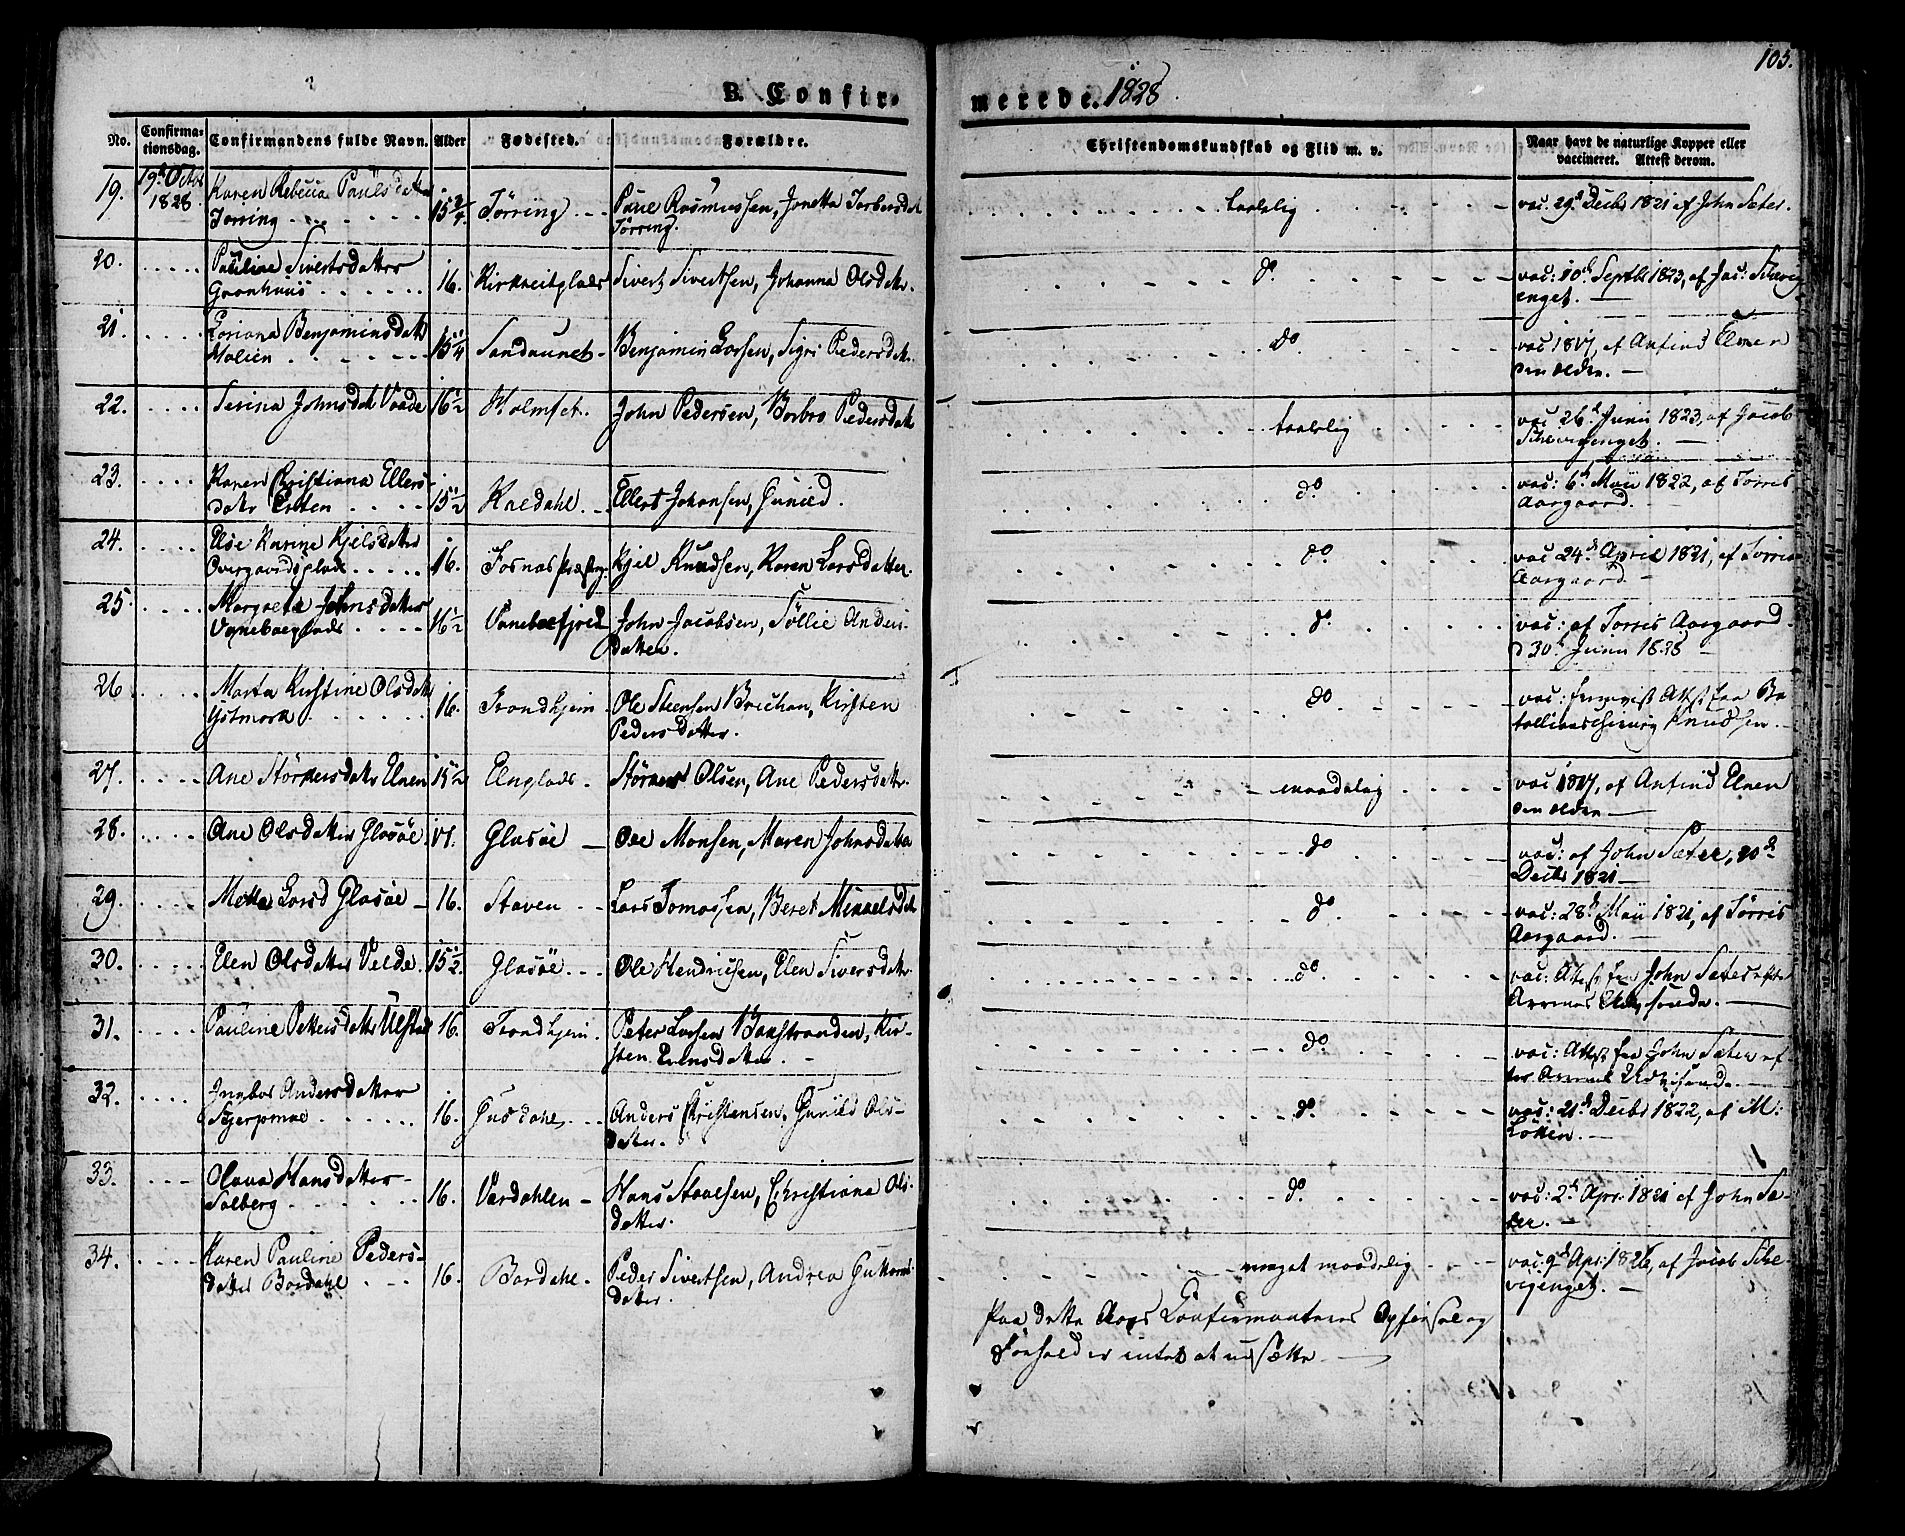 105.
B. Confir-
merede. 1828
No.
Confirma-
tionsdag.
Confirmandens fulde Navn.
Alder
Fødested.
Forældre.
Christendomskundskab og Flid m. v.
Naar havt de naturlige Kopper eller
vaccineret. Attest derom.
19. 19d Octbr 1828. Karen Rebecca Paulsdatter
Tørring 15 3/4. Tørring Paul Rasmussen, Jonetta Torbersdat
Tørring. taalelig vac. 29d Decbr 1821 af John Sæter.
20. Pauline Sivertsdatter
Gronhuus 16. Kirkreitplads Sivert Sivertsen, Johanna Olsdatr. do. vac: 10d Septbr 1823, af Jac: Schevig
enget.
21. Benjaminsdatr
Molien 15 1/4 Sandaunet Benjamin Larsen, Sigri Pedersdatr. do. vac 1817, af Anfind Elnen
den ældre.
22. Serina Johnsdatr Vaade 16 1/2 Holmset. John Pedersen, Borbro Pedersdatr taalelig vac 26d Junii 1823, af Jacob
Schevigenget.
23. Karen Christiana Ellers-
datr Esten 15 1/2 Kaldahl Ellert Johansen, Gunild. do. vac: 6d Maii 1822, af Torris
Aargaard.
24. Else Karine Kjelsdatter
Overgaardsplads 16. Fosnæs Præstg. Kjel Knudsen, Karen Larsdatter. do vac 24d April 1821, af Torris
Aargaard
25. Margreta Johnsdatter
16 1/2 John Jacobsen, Sollie Anders-
datter. do. vac: af Torris Aargaard
d 30d Junii 1828
26. Marta Kirstine Olsdatr
Ystmark 16. Trondhjem Ole Steensen Brechan, Kirsten
Pedersdatter. do vac: Attest fra Ba-
tallionschirurg Knudsen.
27. Ane Størkersdatr Elnen 15 1/2 Elnplads Størker Olsen, Ane Pedersdatr. maadelig vac 1817, af Anfind Elnen
den ældre
28. Ane Olsdatter Glasøe 17. Glasøe Ole Monsen, Maren Johnsdatter do vac: af John Sæter, 20d
Decbr 1821
29. Mette Larsd Glasøe 16. Staven Lars Tomassen, Beret Mikkelsdatr do vac: 28d Maii 1821, af Torris
Aargaard.
30. Elen Olsdatter Velde. 15 1/2. Glasøe Ole Hendricsen, Elen Siversdatr. do. vac: Attest fra John Sæter efter
31. Pauline Pettersdatter Ulstad 16. Trondhjem. Peter Larsen Bakstranden, Kir-
sten datter. do vac: Attest fra John Sæter ef-
ter
32. Ingebor Andersdatter
Skjerpmoe 16. Gusdahl Anders Christensen, Gunild Ols-
datter. do. vac: 21d Decbr 1822, af M:
Løkken.
33. Olava Hansdatter
Solberg 16. Værdahlen Hans Staalesen, Christiana Ols-
datter. do. vac: 2d Apr: 1821 af John Sæ-
ter.
34. Karen Pauline Peders-
datter Bordahl 16. Bordahl. Peder Sivertsen, Andrea Guttorms-
datter. meget maadelig vac: 9d Apr: 1826, af Jacob Sche-
vigenget.
Paa dette Aars Confirmanters Opførsel og
Forhold er intet at udsætte.